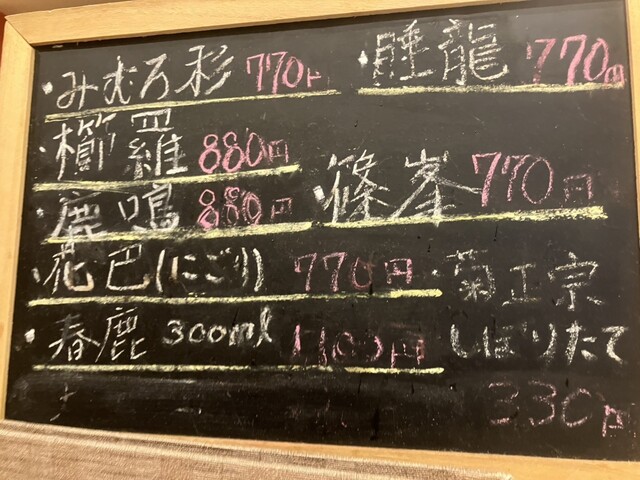 ・みむろ杉 770円
・櫛羅 880円
・鹿鳴 880円
・花巴(にごり) 770円
・春鹿 300ml 1100円
・睡龍 770円
・篠峯 770円
・菊正宗
しぼりたて
330円